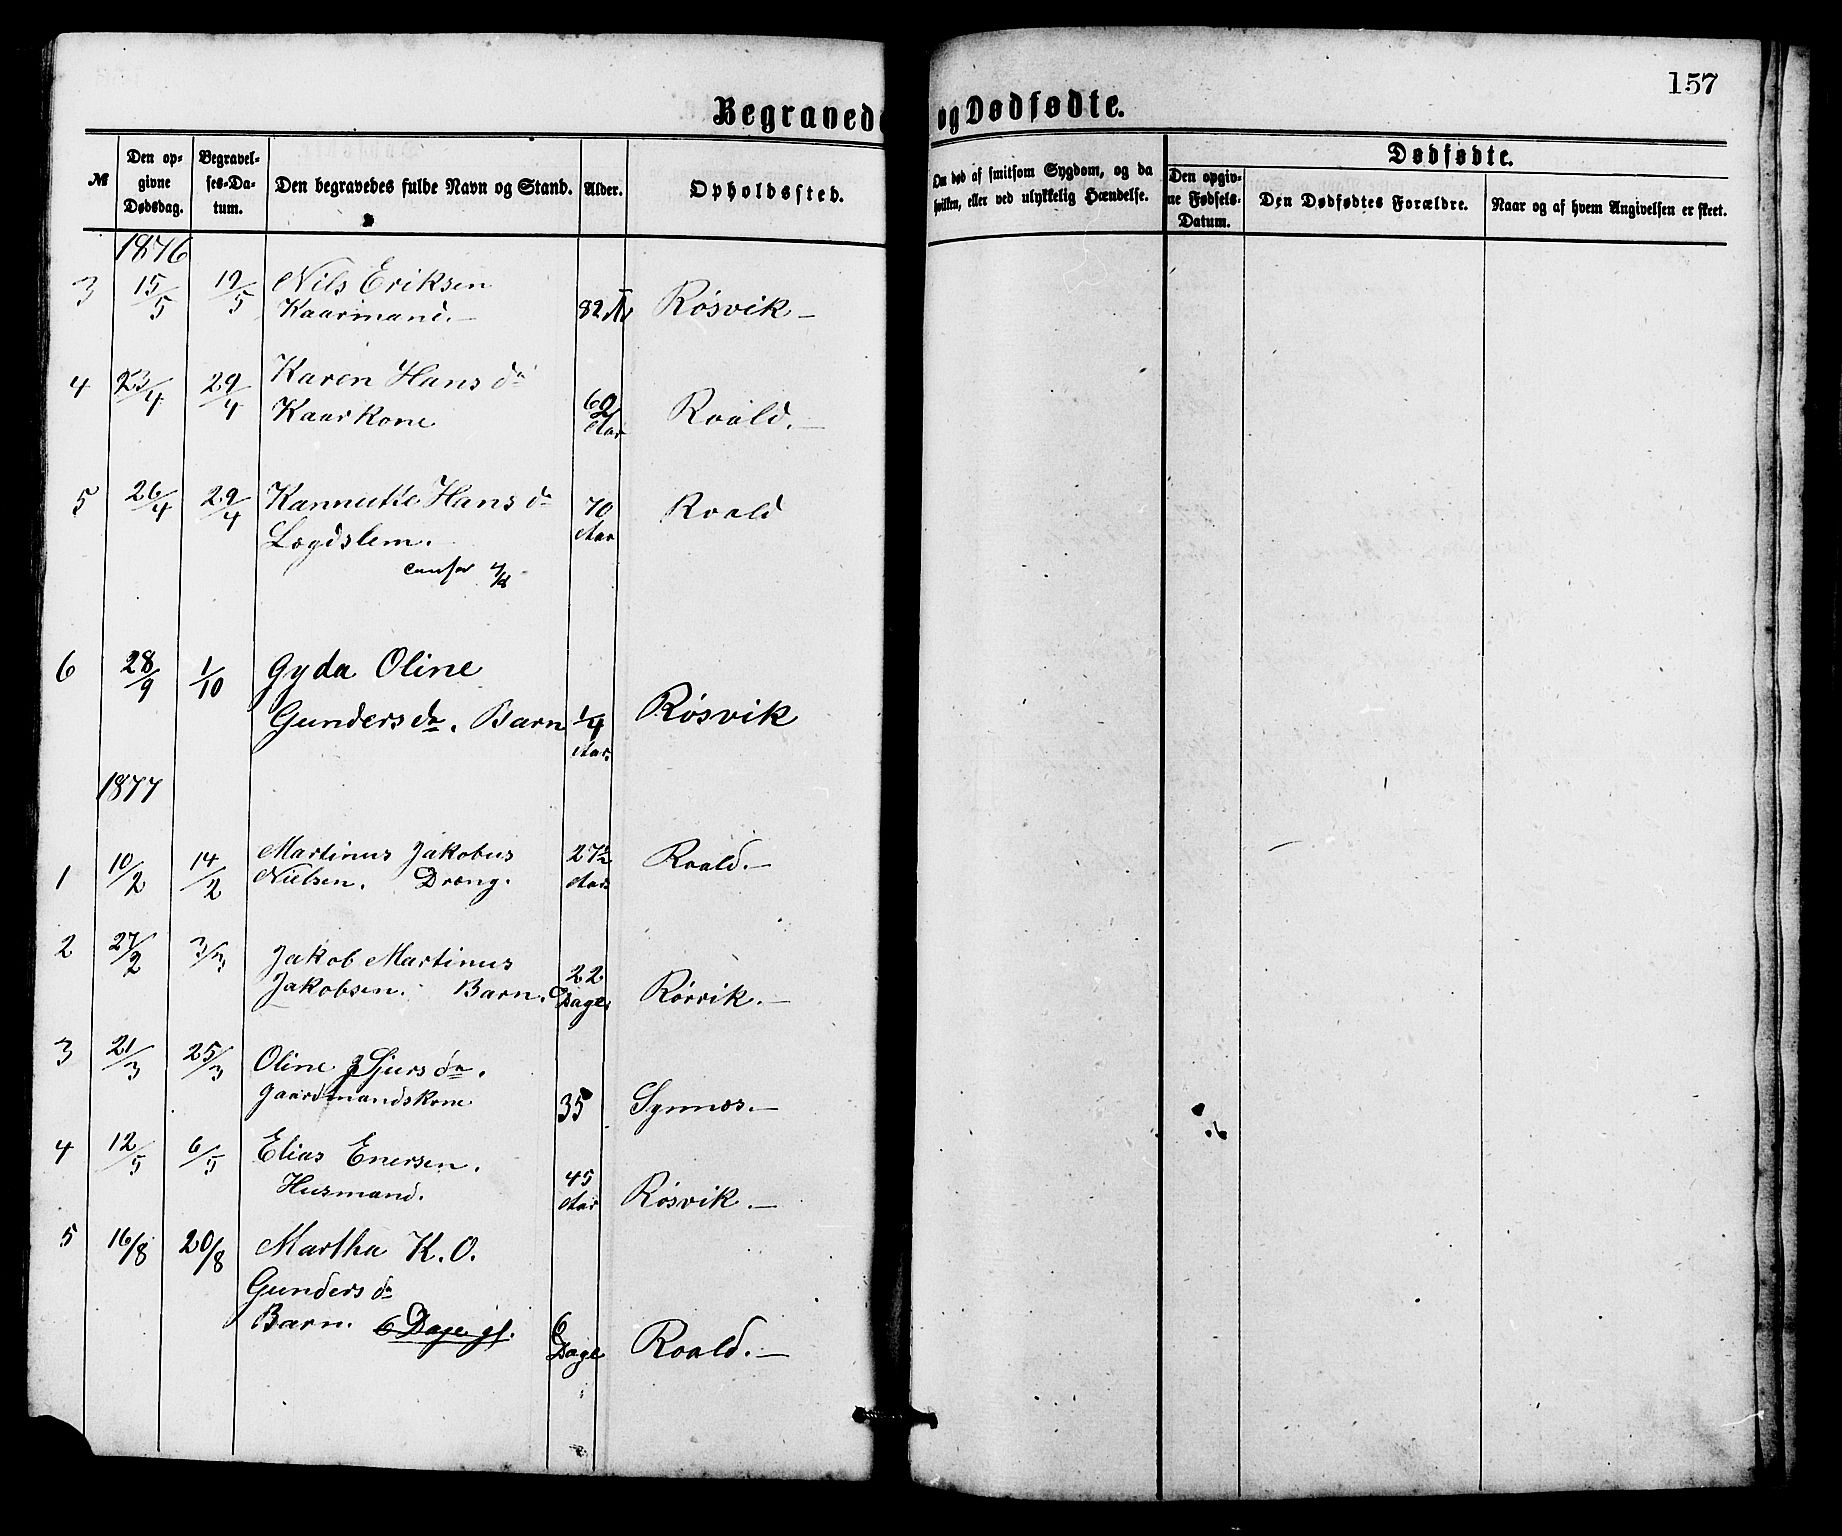 157
Begravede og Dødfødte.
№
Den op-
givne
Dødsdag.
Begravel-
ses-Da-
tum.
Den begravedes fulde Navn og Stand.
Alder.
Opholdssted.
Om død af smitsom Sygdom, og da
hvilken, eller ved ulykkelig Hændelse.
Dødfødte.
Den opgiv-
ne Fødsels-
Datum.
Den Dødfødtes Forældre.
Naar og af hvem Angivelsen er skeet.
1876
3 15/5 19/5 Nils Eriksen
Kaarmand. — 82 Røsvik —
4 23/4 29/4 Karen Hans da
Kaarkone 69 Aar Roald. —
5 26/4 29/4 Hans da 70 Aar Roald
Lægdslem.
6 28/9 1/10 Gyda Oline
Gunders da. Barn 1/4 Aar. Røsvik
1877
1 10/2 14/2 Martinus Jakobus
Nielsen. Dræng. 27 Aar Roald. —
2 27/2 3/3 Jakob Martinus
Jakobsen. Barn. 22 Dage. Rørvik. —
3 21/3 25/3 Oline Sjurs da.
gaardmandskone 35 Synnæs. —
4 12/5 6/5 Elias Enersen.
Husmand. 45 Aar Røsvik. —
5 16/8 20/8 Martha K. O.
Gunders da
Barn. 6 Dage gl. 6 Dage Roald. —